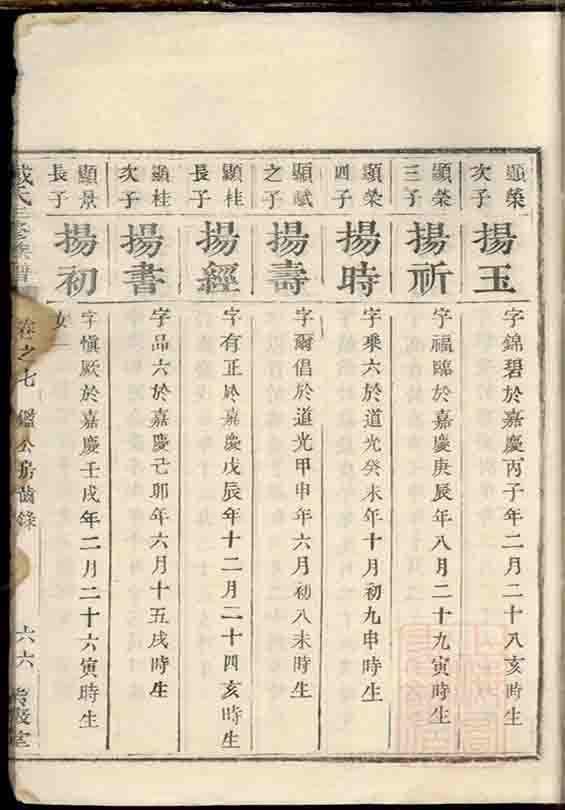 顯榮
次子
揚玉
字錦碧於嘉慶丙子年二月二十八亥時生
顯榮
三子
揚祈
字福臨於嘉慶庚辰年八月二十九寅時生
顯榮
四子
揚時
字乘六於道光癸未年十月初九申時生
顯賦
之子
揚壽
字爾倡於道光甲申年六月初八未時生
顯桂
長子
揚經
字有正於嘉慶戊辰年十二月二十四亥時生
顯桂
次子
揚書
字品六於嘉慶己卯年六月十五戌時生
顯景
長子
揚初
字愼厥於嘉慶壬戌年二月二十六寅時生
女一
氏 修族譜
卷之七 鑑公房齒錄
六六
堂